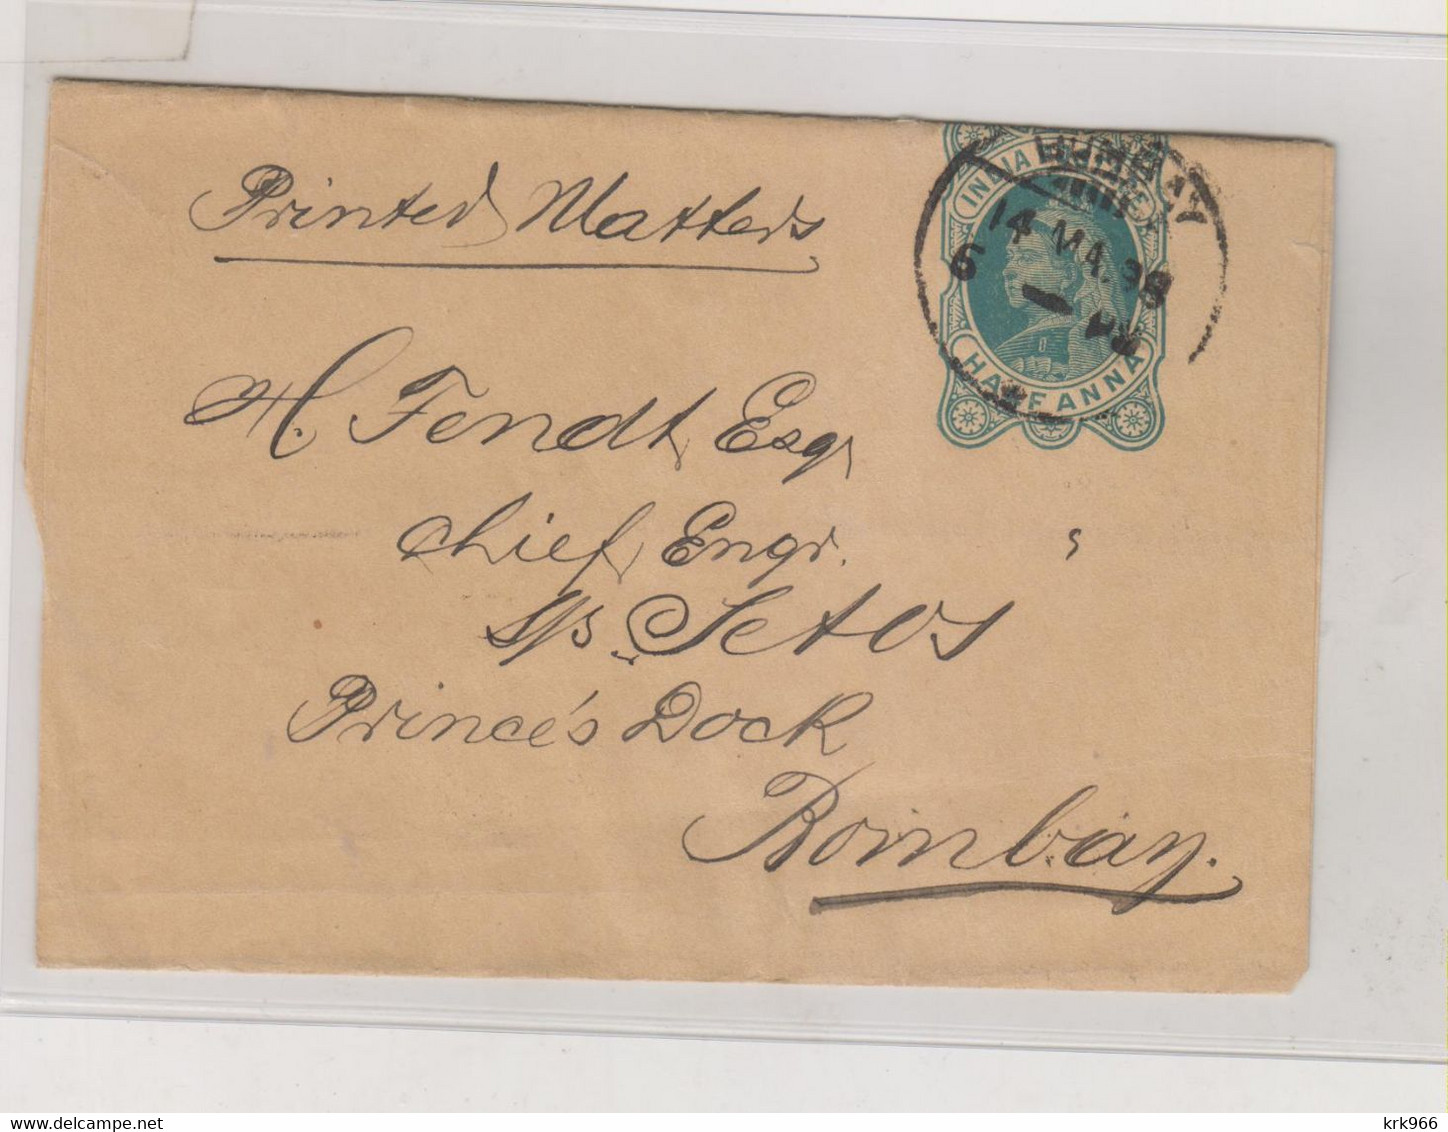 Printed Matters
INDIA
HALF ANNA
BOMBAY
14 MA.98
6
H. Fendt Esqr
Chief Engr.
S/S. Setos
Prince's Dock
Bombay.
krk966